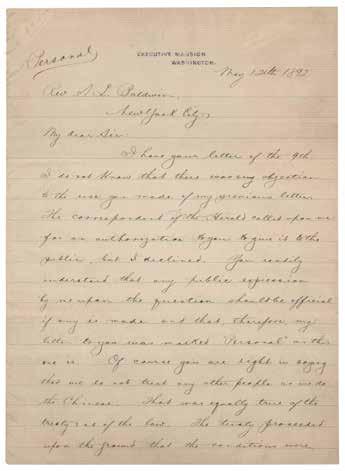 Personal
EXECUTIVE MANSION
WASHINGTON.
May 12th 1892
Rev. S. L. Baldwin,
New York City,
My dear Sir:
I have your letter of the 9th.
I do not know that there was any objection
to the use you made of my previous letter.
The correspondent of the Herald called upon me
for an authorization to you to give it to the
public, but I declined. You readily
understand that any public expression
by me upon the question should be official
if any is made and that, therefore, my
letter to you was marked "Personal" as this
one is. Of course you are right in saying
that we do not treat any other people as we do
the Chinese. That was equally true of the
treaty as of the law. The treaty proceeded
upon the ground that the conditions were